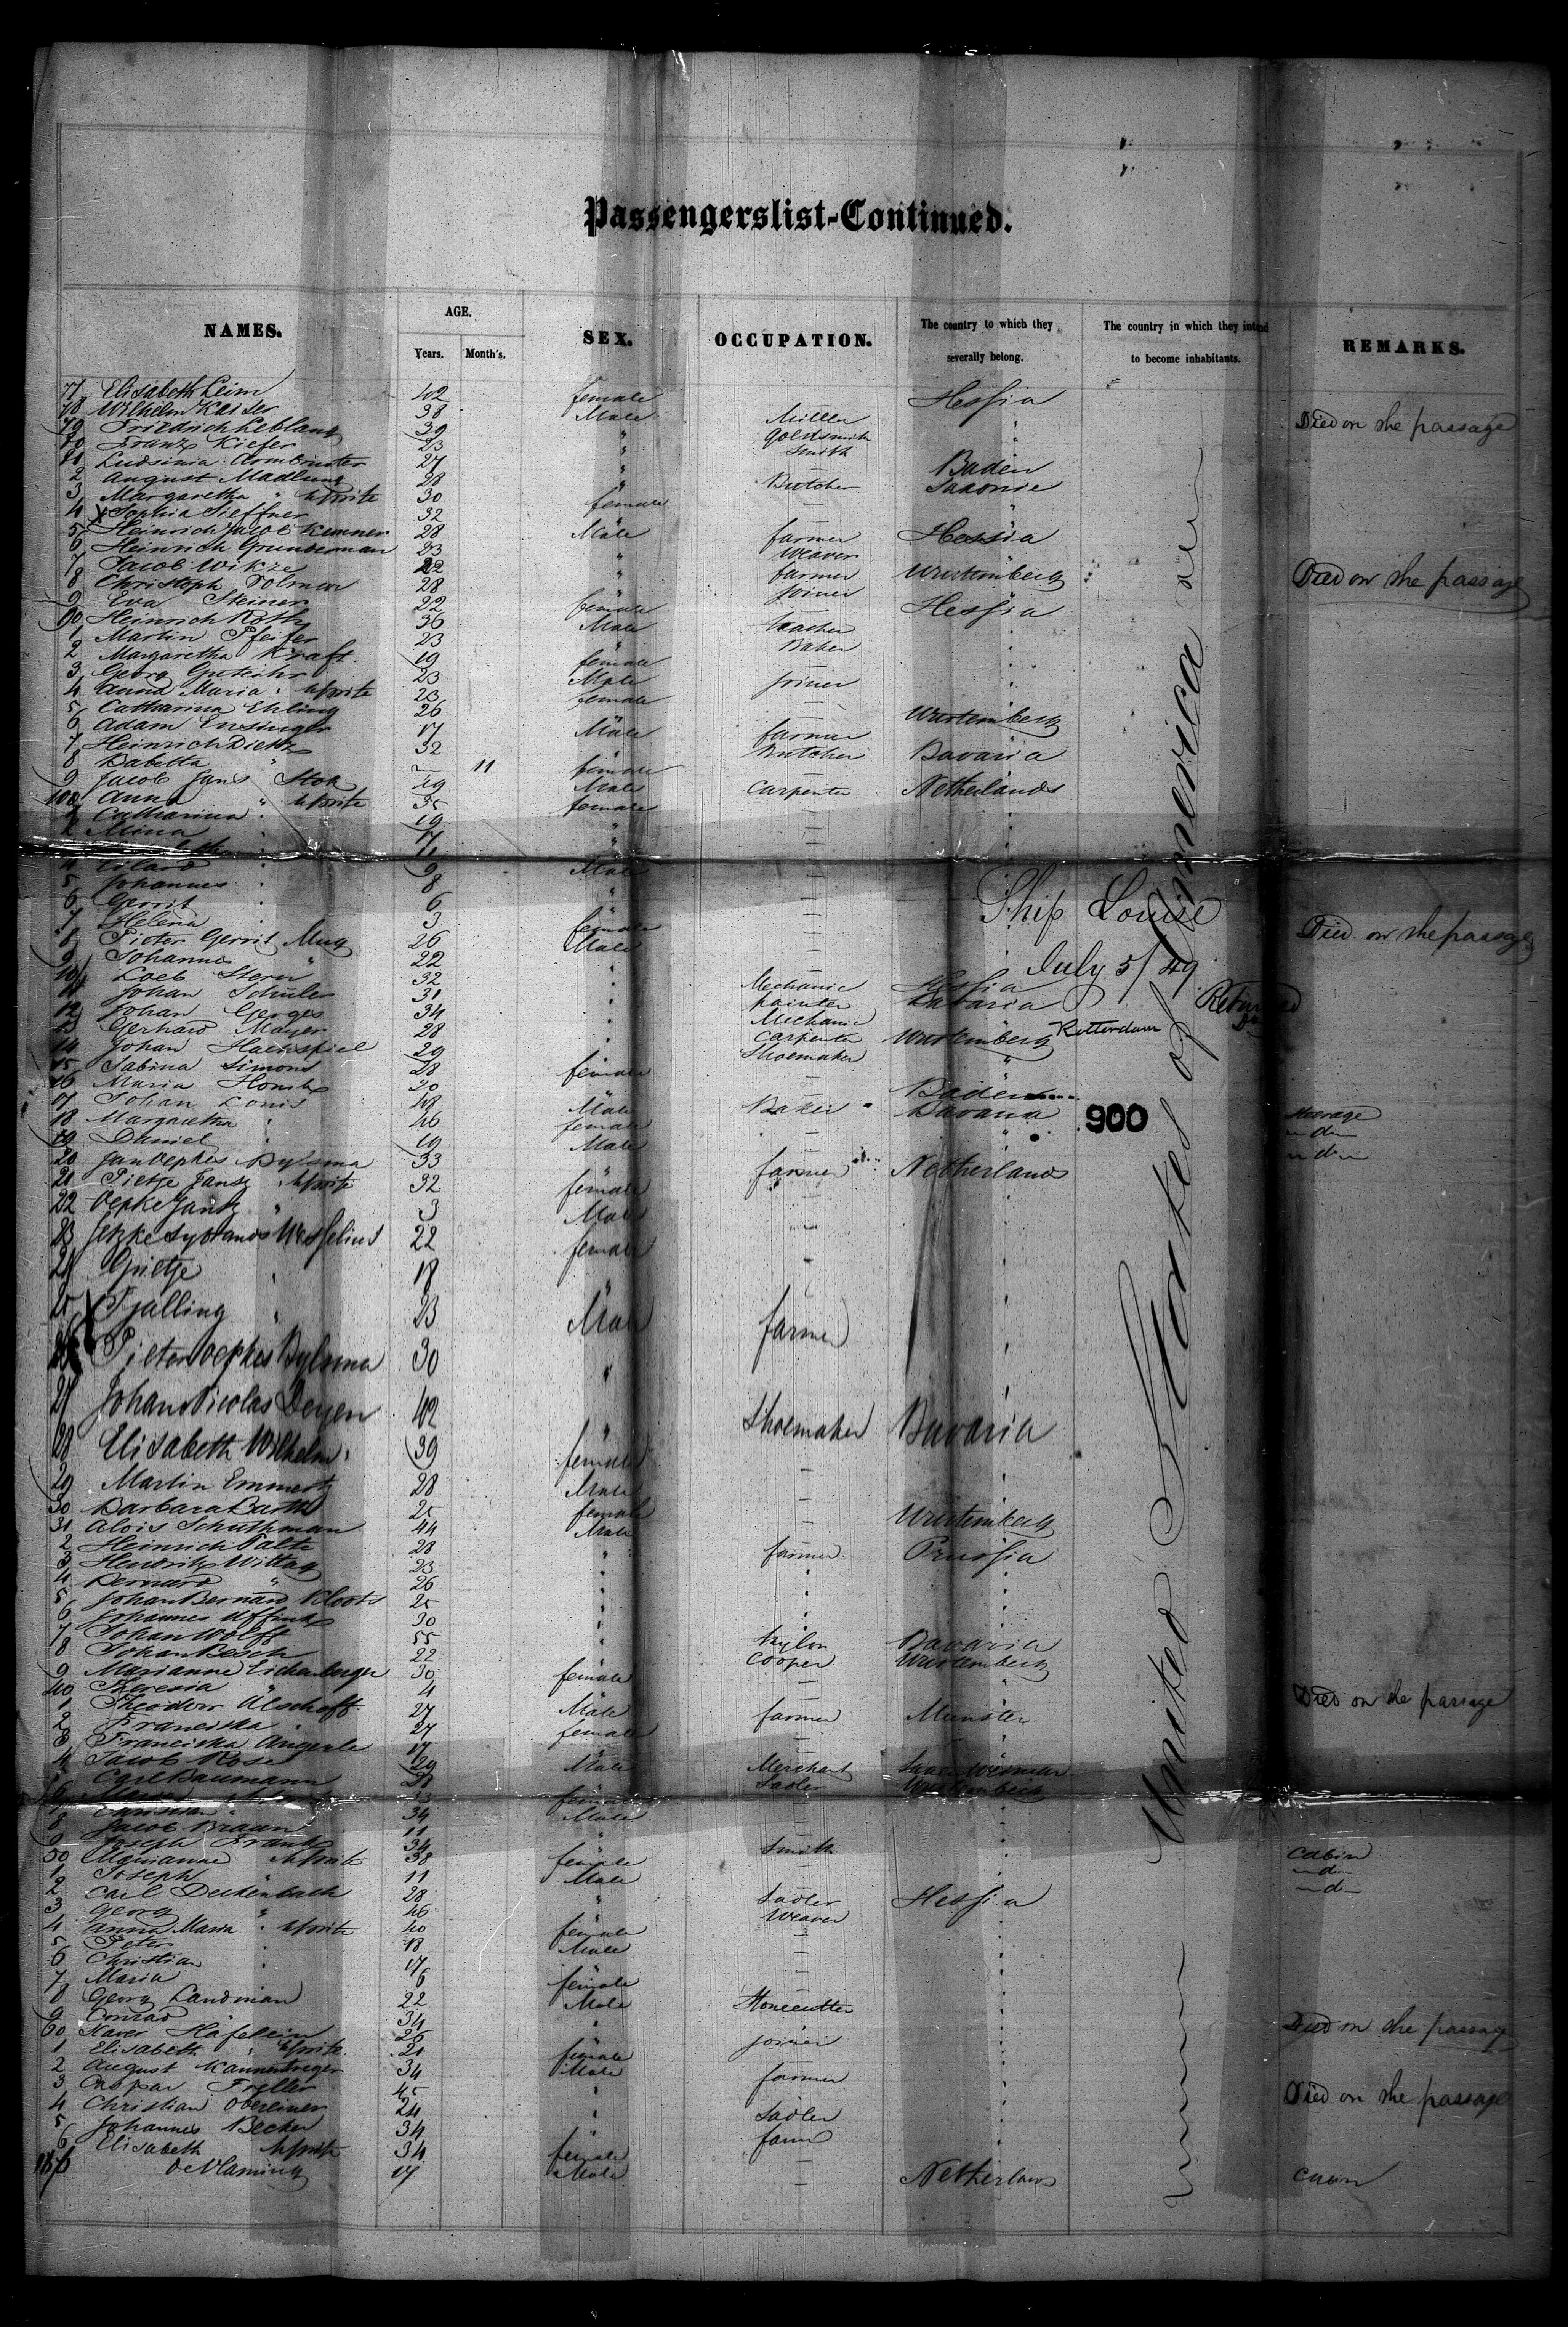 Passengerslist-Continued.
NAMES. AGE. SEX. OCCUPATION. The country to which they severally belong. The country in which they intend to become inhabitants. REMARKS.
Years. Month's.
77 Elisabeth Leim 42 female Hessia
78 Wilhelm Kaiser 38 Male Miller "
79 Friedrich Leblang 39 " Goldsmith " Died on the passage
80 Franz Kiefer 23 " Smith "
81 Ludsinia Armbruster 27 " — Baden
2 August Madlung 28 " Butcher Saxonie
3 Margaretha " 30 female —
4 Sophia Sieffner 32 — "
5 Heinrich Jacob Kemner 28 Male farmer Hessia
6 Heinrich Grunderman 23 weaver
7 Jacob Wikze 22 " farmer Wurtemberg
8 Christoph Folmer 28 " Joiner Died on the passage
9 Eva Steiner 22 female Hessia
90 Heinrich Roth 36 Male
1 Martin Pfeifer 23 " Baker
2 Margaretha Kraft 19 female
3 Georg 23 Male Joiner
4 Anna Maria " 23 female —
5 Catharina Ehling 26 —
6 Adam Ensinger 17 Male farmer Wurtemberg
7 Heinrich Dietz 32 " Butcher Bavaria
8 Babetta " — 11 female
9 Jacob Jans Stok 49 Male Carpenter Netherlands
100 Anna " 35 female —
1 Catharina " 19 " —
2 Mina " 17 " —
4 Eilard " 9 Male —
5 Johannes " 8 —
6 Gerrit " 6 " —
7 Helena " 3 female — Died on the passage
8 Pieter Gerrit Mug 26 Male —
9 Johannes " 22 " —
Ship Louise
July 5/49
Rotterdam
900
United States of America
10 Loeb Stern 32 " Mechanic Hessia
11 Johan Schuler 31 " painter Bavaria
12 Johan Gerges 34 " Mechanic
13 Gerhard Mayer 28 " Carpenter Wurtemberg
14 Johan Hackspiel 29 Shoemaker "
15 Sabina Simons 28 female
16 Maria 20 — Baden
17 Johan Louis 48 Male Baker Bavaria
18 Margaretha " 46 female — steerage
19 Daniel " 19 Male — " — d —
20 Jan Oepkes Bylsma 33 farmer Netherlands — d —
21 Pietje Jansz 32 female
22 Oepke Jansz " 3 Male
23 Jetzke Sybrands Wesselius 22 female
24 Grietje " 18
25 Tjalling " 23 Male farmer
26 Pieter Oepkes Bylsma 30 "
27 Johan Nicolas Deyen 42 Shoemaker Bavaria
28 Elisabeth Wilhelm 39 female
29 Martin Emmert 28 Male —
30 Barbara Barth 25 female —
31 Alois Schuthman 44 Male Wurtemberg
2 Heinrich Palte 28 " farmer Prussia
3 Hendrik Wittag 23 "
4 Bernard " 26 "
5 Johan Bernard Kloots 25 "
6 Johannes Uffink 30 "
7 Johan Wolff 55 " Bavaria
8 Johan Besch 22 Cooper Wurtemberg
9 Marianne Eichenberger 30 female —
40 Theresia " 4 — Died on the passage
1 Theodor 27 Male farmer Munster
2 Franciska " 27 female —
3 Franciska Angerle 17 " —
4 Jacob Rose 29 Male Merchant
Carl Baumann 28 Sadler Wurtemberg
6 Maria 33 female
7 Christian " 34 Male
8 Jacob Braun 11 —
9 Joseph Frank 34 " Smith
50 Marianne 38 female — Cabin
1 Joseph " 11 Male — — d —
2 Carl Deckenbach 28 " Sadler Hessia — d —
3 Georg " 46 Weaver
4 Anna Maria " 40 female —
5 Peter " 18 Male
6 Christian " 17 —
7 Maria " 6 female —
8 Georg Landman 22 Male Stonecutter
9 Conrad 34 " Died on the passage
60 Xaver Häfelein 26 Joiner
1 Elisabeth " 21 female
2 August Kannentreger 34 Male farmer
3 Caspar Freller 45 " Died on the passage
4 Christian Oberlines 24 " Sadler
5 Johannes Becker 34 " farm
6 Elisabeth 34 female
167 de Vlaming 17 Male — Netherlands